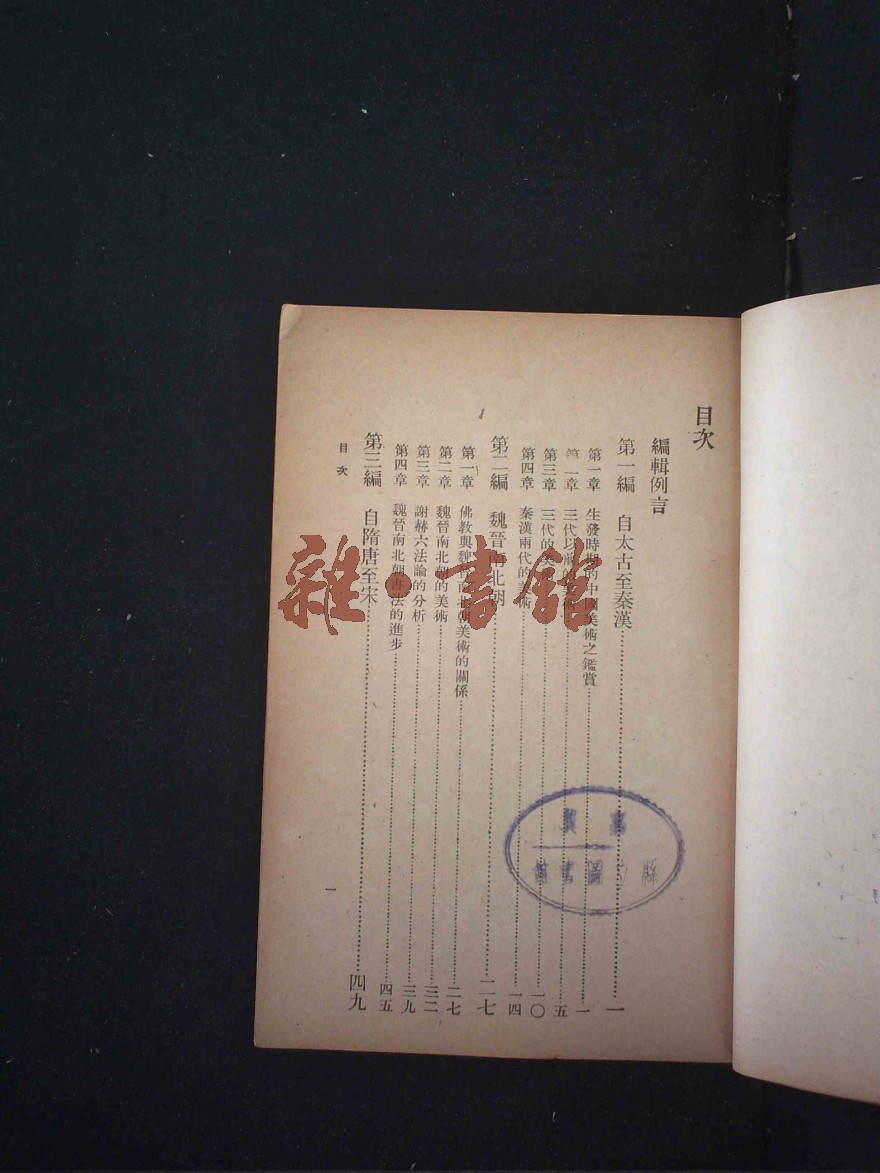 目次
編輯例言
第一編 自太古至秦漢 一
第一章 生發時期的中國美術之鑑賞 一
第二章 三代以前的美術 五
第三章 三代的美術 一〇
第四章 秦漢兩代的美術 一四
第二編 魏晉南北朝 二七
第一章 佛教與魏晉南北朝美術的關係 二七
第二章 魏晉南北朝的美術 三二
第三章 謝赫六法論的分析 三九
第四章 魏晉南北朝書法的進步 四五
第三編 自隋唐至宋 四九
目次
一
雜·書館
嘉興
縣圖書館